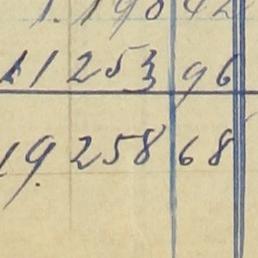 1.198 42
11 253 96
19.258 68